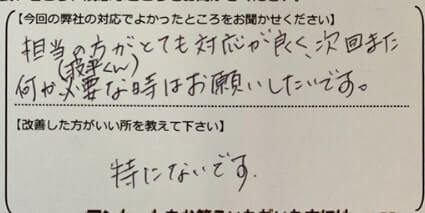 【今回の弊社の対応でよかったところをお聞かせください】
担当の方がとても対応が良く、次回また
何か必要な時はお願いしたいです。
【改善した方がいい所を教えて下さい】
特にないです.